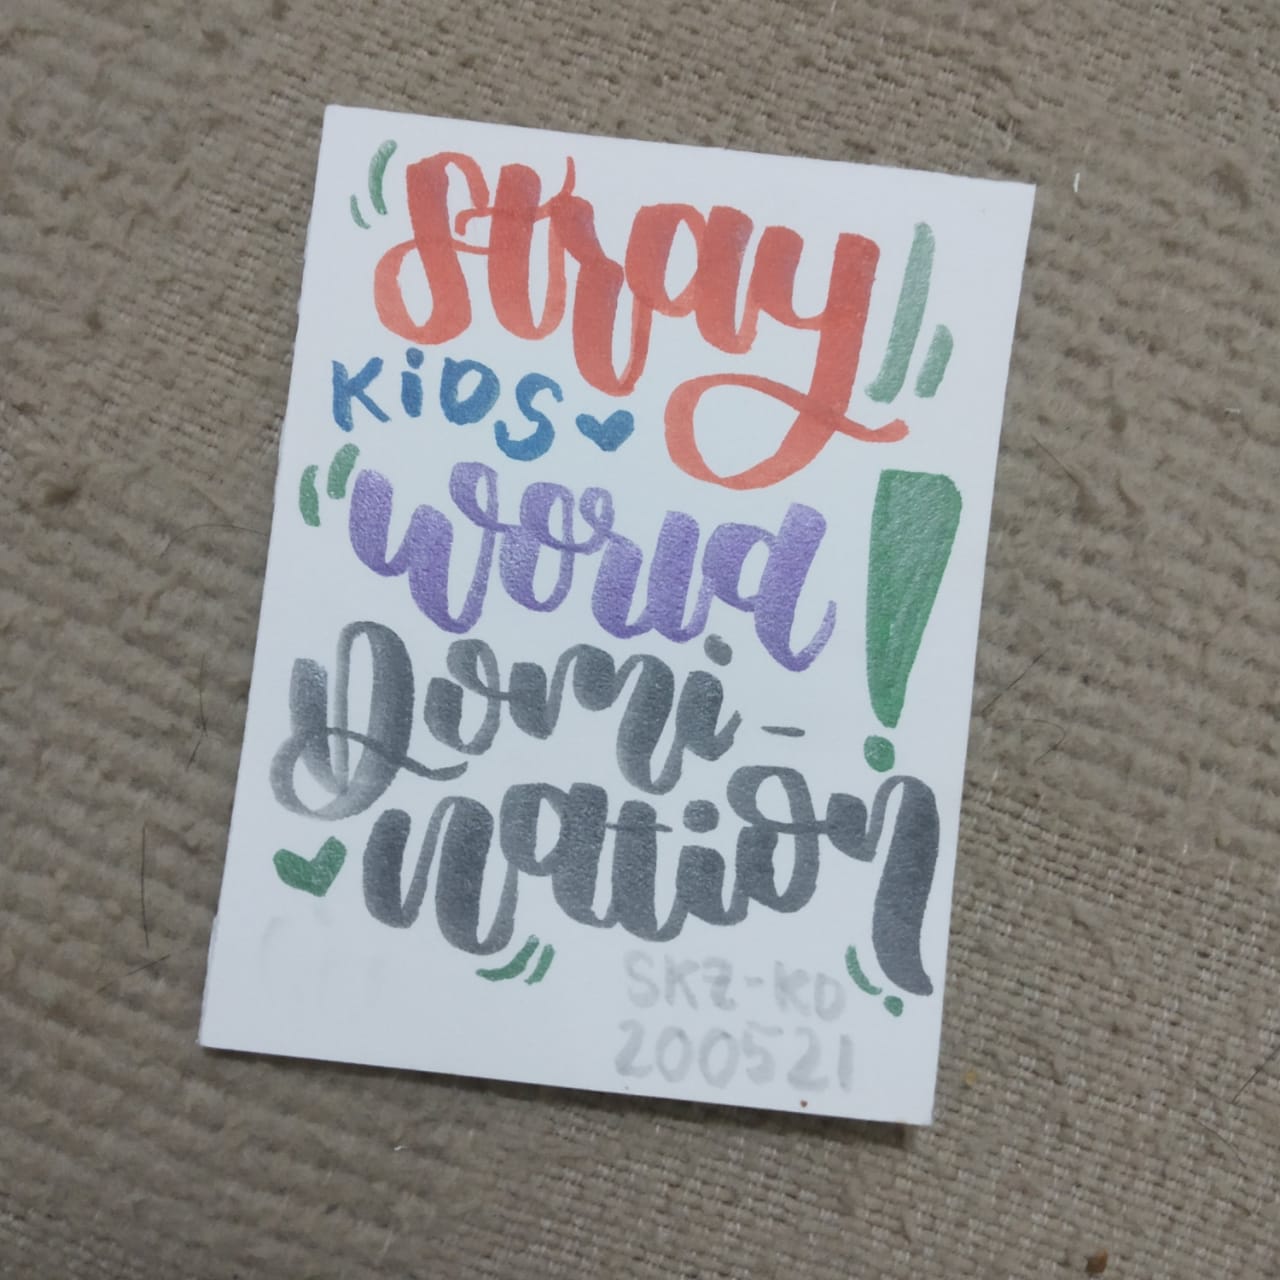 Stray
KiDS
world
Domi-
nation!
SKZ-KD
200521